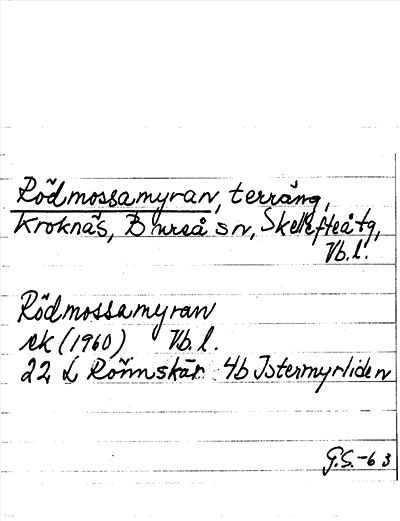 Rödmossamyran, terräng,
Kroknäs, Bureå sn, Skellefteå tg,
Vb.l.
Rödmossamyran
ek (1960) Vb.l.
22 L Rönnskär 4b Istermyrliden
G.S.-63